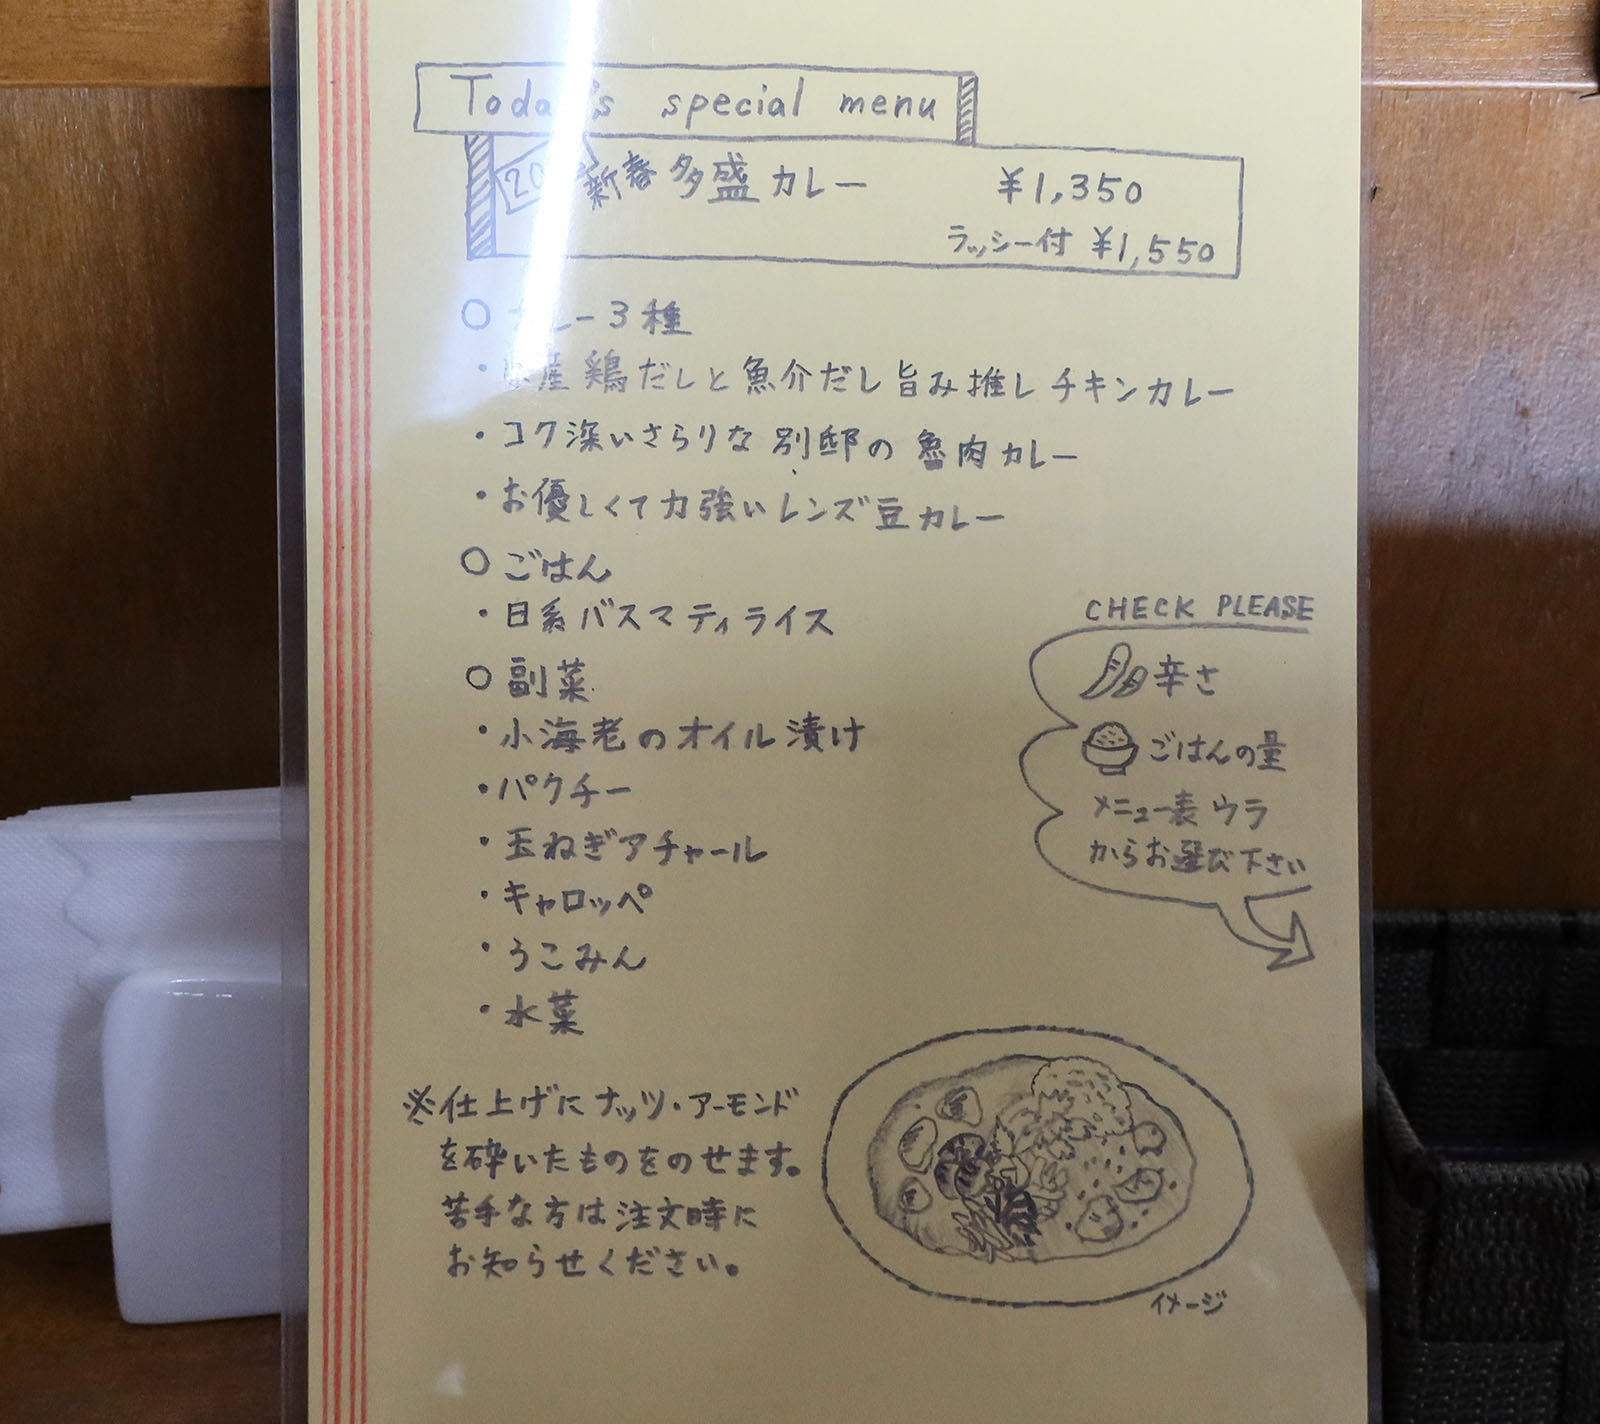 Today's special menu
新春 多盛カレー ¥1,350
ラッシー付 ¥1,550
○ カレー3種
・ 産鶏だしと魚介だし旨み推しチキンカレー
・コク深いさらりな別邸の魯肉カレー
・お優しくて力強いレンズ豆カレー
○ ごはん
・日系バスマティライス
○ 副菜
・小海老のオイル漬け
・パクチー
・玉ねぎアチャール
・キャロッペ
・うこみん
・水菜
※仕上げにナッツ・アーモンド
を砕いたものをのせます。
苦手な方は注文時に
お知らせください。
CHECK PLEASE
辛さ
ごはんの量
メニュー表ウラ
からお選び下さい
イメージ